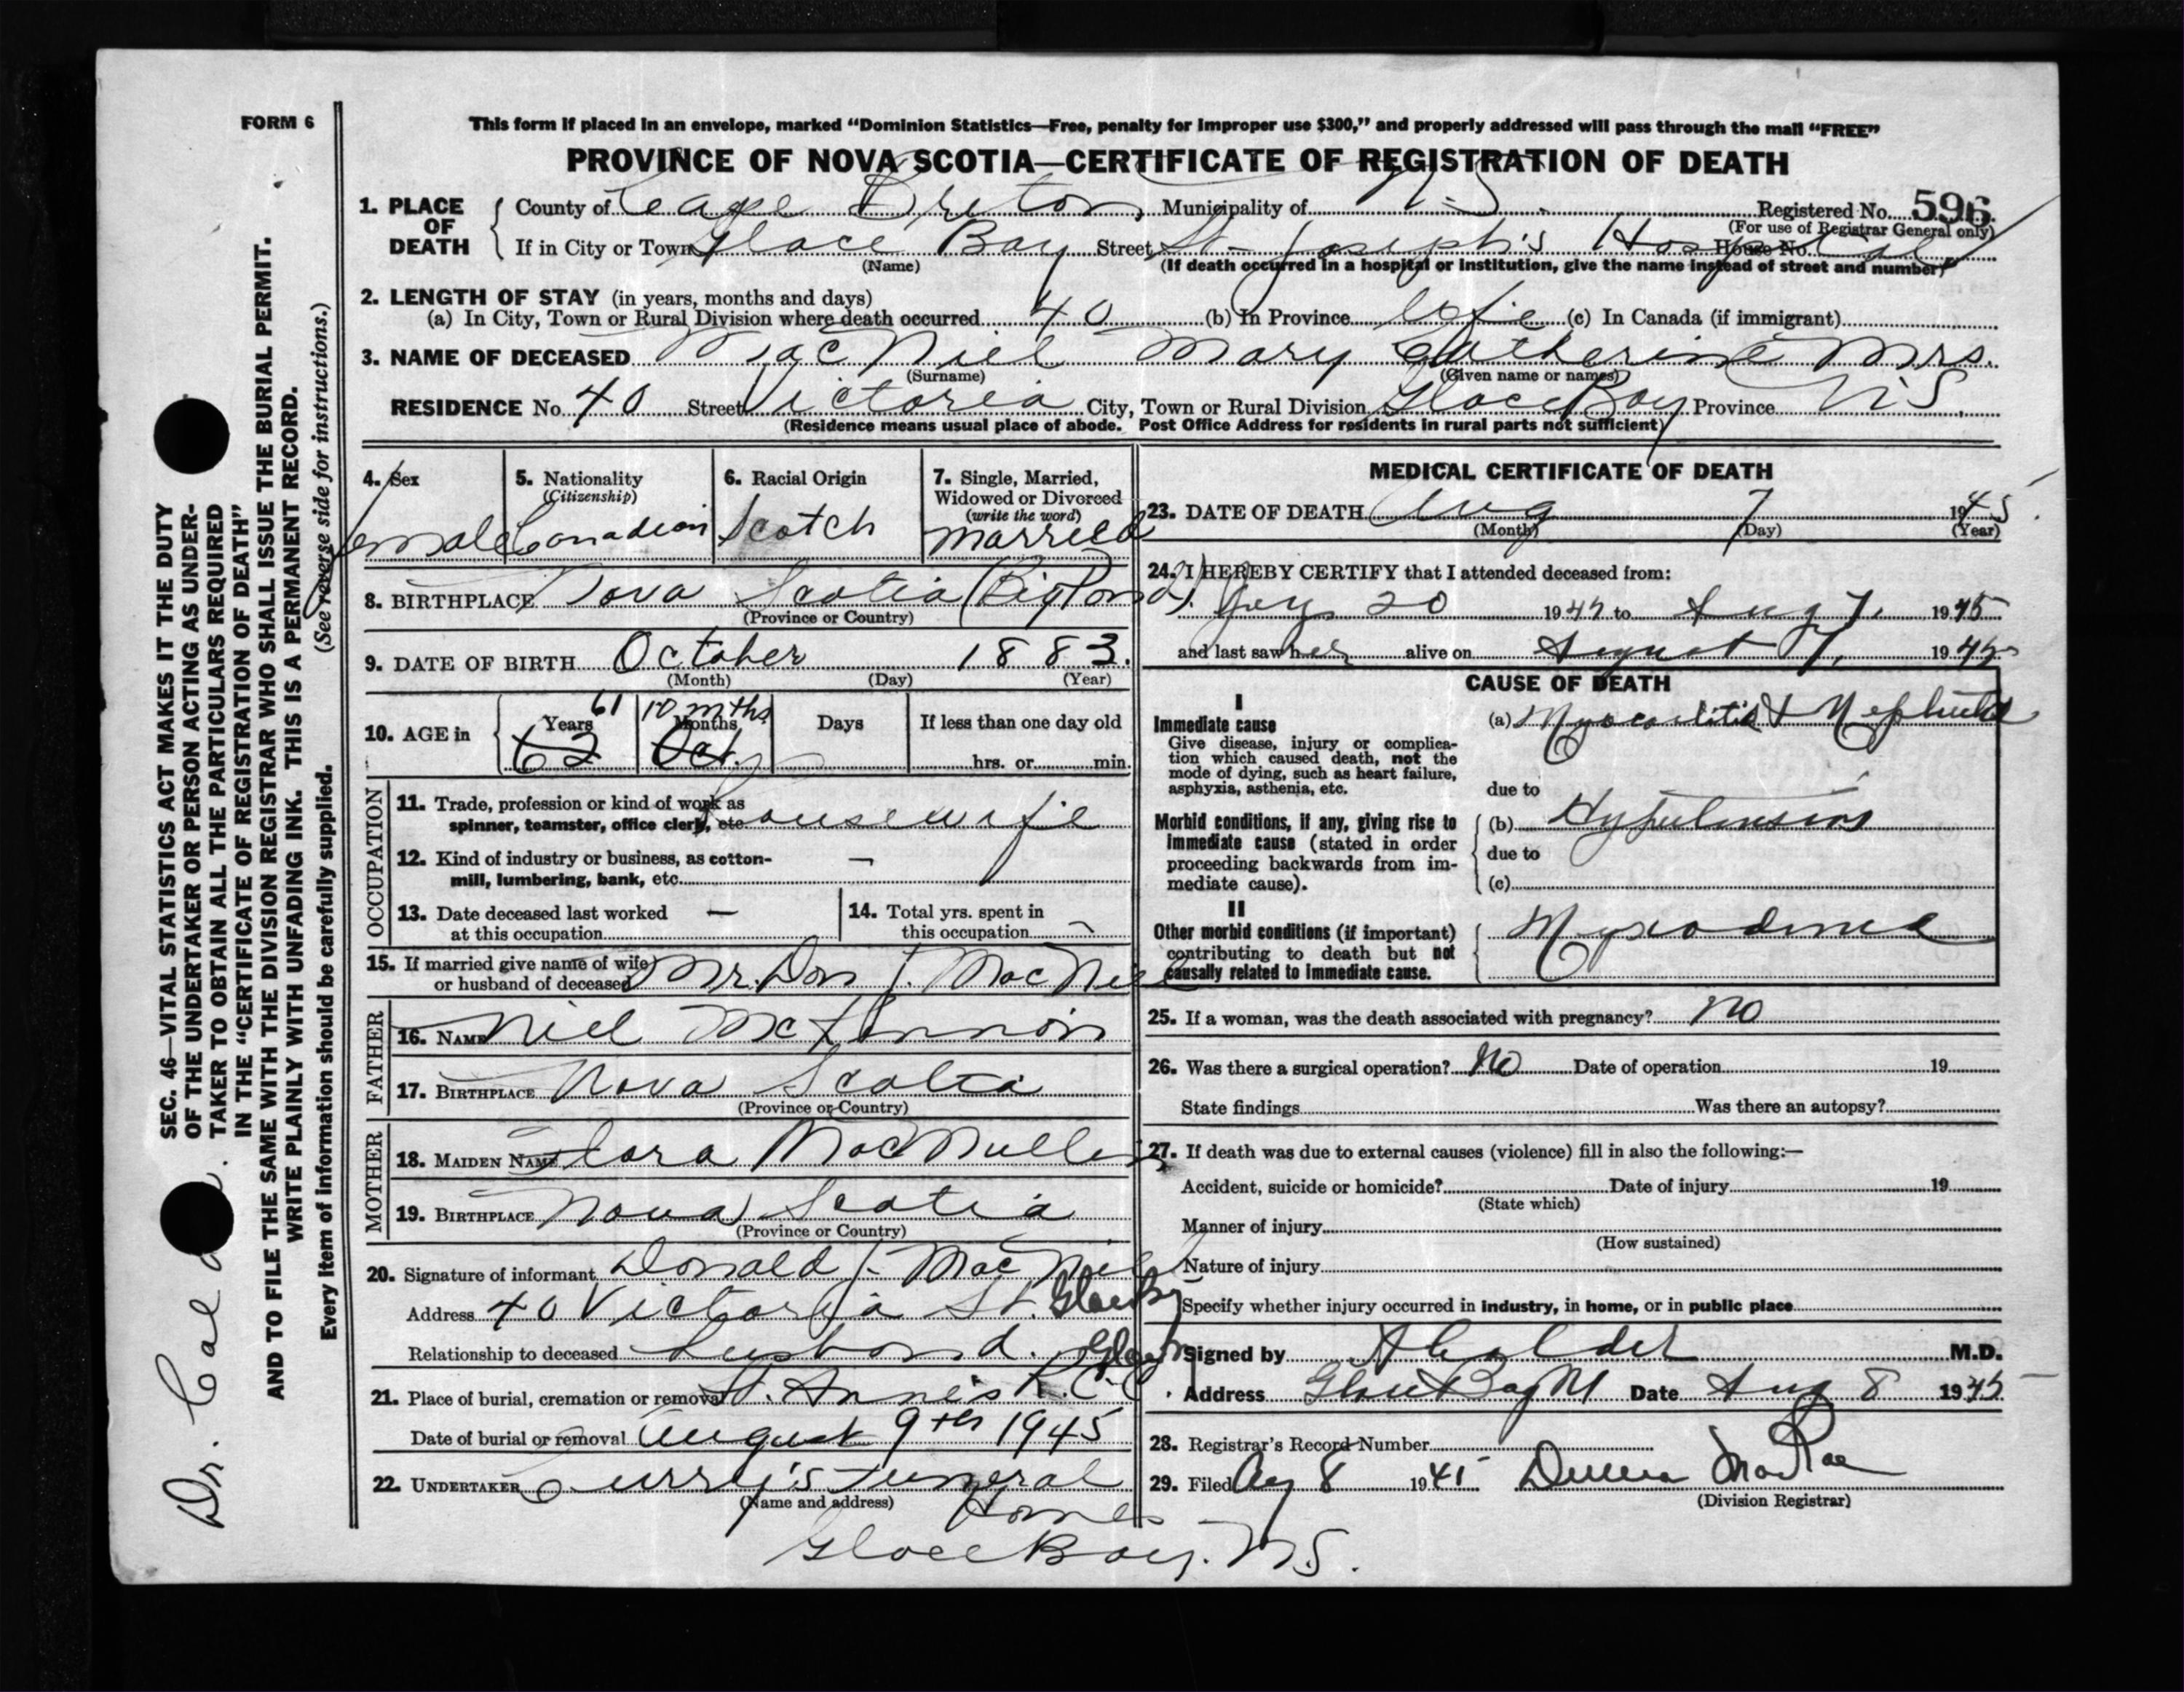 FORM 6
This form if placed in an envelope, marked "Dominion Statistics—Free, penalty for improper use $300," and properly addressed will pass through the mail "FREE"
PROVINCE OF NOVA SCOTIA—CERTIFICATE OF REGISTRATION OF DEATH
1. PLACE OF DEATH County of Cape Breton, Municipality of N.S. Registered No. 596
(For use of Registrar General only)
If in City or Town Glace Bay Street St. Joseph's Hospital House No.
(Name) (If death occurred in a hospital or institution, give the name instead of street and number)
2. LENGTH OF STAY (in years, months and days)
(a) In City, Town or Rural Division where death occurred 40 (b) In Province Life (c) In Canada (if immigrant)
3. NAME OF DECEASED MacNiel Mary Catherine Mrs.
(Surname) (Given name or names)
RESIDENCE No. 40 Street Victoria City, Town or Rural Division Glace Bay Province N.S.
(Residence means usual place of abode. Post Office Address for residents in rural parts not sufficient)
4. Sex Female
5. Nationality (Citizenship) Canadian
6. Racial Origin Scotch
7. Single, Married, Widowed or Divorced (write the word) Married
8. BIRTHPLACE Nova Scotia (Big Pond).
(Province or Country)
9. DATE OF BIRTH October 1883.
(Month) (Day) (Year)
10. AGE in Years 61 62 Months 10 mths Oct. Days If less than one day old
hrs. or min.
OCCUPATION
11. Trade, profession or kind of work as
spinner, teamster, office clerk, etc. Housewife
12. Kind of industry or business, as cotton-
mill, lumbering, bank, etc. —
13. Date deceased last worked
at this occupation —
14. Total yrs. spent in
this occupation —
15. If married give name of wife
or husband of deceased Mr. Dan J. MacNiel
FATHER
16. NAME Niel McKinnon
17. BIRTHPLACE Nova Scotia
(Province or Country)
MOTHER
18. MAIDEN NAME Flora MacMullen
19. BIRTHPLACE Nova Scotia
(Province or Country)
20. Signature of informant Donald J. MacNiel
Address 40 Victoria St. Glace Bay
Relationship to deceased Husband.
21. Place of burial, cremation or removal St. Anne's R.C.C. Glace Bay
Date of burial or removal August 9th 1945
22. UNDERTAKER Curry's Funeral
(Name and address) Home
Glace Bay. N.S.
MEDICAL CERTIFICATE OF DEATH
23. DATE OF DEATH Aug 7 1945
(Month) (Day) (Year)
24. I HEREBY CERTIFY that I attended deceased from:
20 19 to Aug 7, 1945
and last saw her alive on August 7, 1945
CAUSE OF DEATH
I
Immediate cause
Give disease, injury or complica-
tion which caused death, not the
mode of dying, such as heart failure,
asphyxia, asthenia, etc.
(a) Myocarditis & Nephritis
due to
Morbid conditions, if any, giving rise to
immediate cause (stated in order
proceeding backwards from im-
mediate cause).
(b) Hypertension
due to
(c)
II
Other morbid conditions (if important)
contributing to death but not
causally related to immediate cause.
Myxodema
25. If a woman, was the death associated with pregnancy? No
26. Was there a surgical operation? No Date of operation 19
State findings Was there an autopsy?
27. If death was due to external causes (violence) fill in also the following:—
Accident, suicide or homicide? Date of injury 19
(State which)
Manner of injury
(How sustained)
Nature of injury
Specify whether injury occurred in industry, in home, or in public place
Signed by A Calder M.D.
Address Glace Bay NS Date Aug 8 1945
28. Registrar's Record Number
29. Filed Aug 8 1945 MacRae
(Division Registrar)
SEC. 46—VITAL STATISTICS ACT MAKES IT THE DUTY
OF THE UNDERTAKER OR PERSON ACTING AS UNDER-
TAKER TO OBTAIN ALL THE PARTICULARS REQUIRED
IN THE "CERTIFICATE OF REGISTRATION OF DEATH"
AND TO FILE THE SAME WITH THE DIVISION REGISTRAR WHO SHALL ISSUE THE BURIAL PERMIT.
WRITE PLAINLY WITH UNFADING INK. THIS IS A PERMANENT RECORD.
Every item of information should be carefully supplied. (See reverse side for instructions.)
Dr.